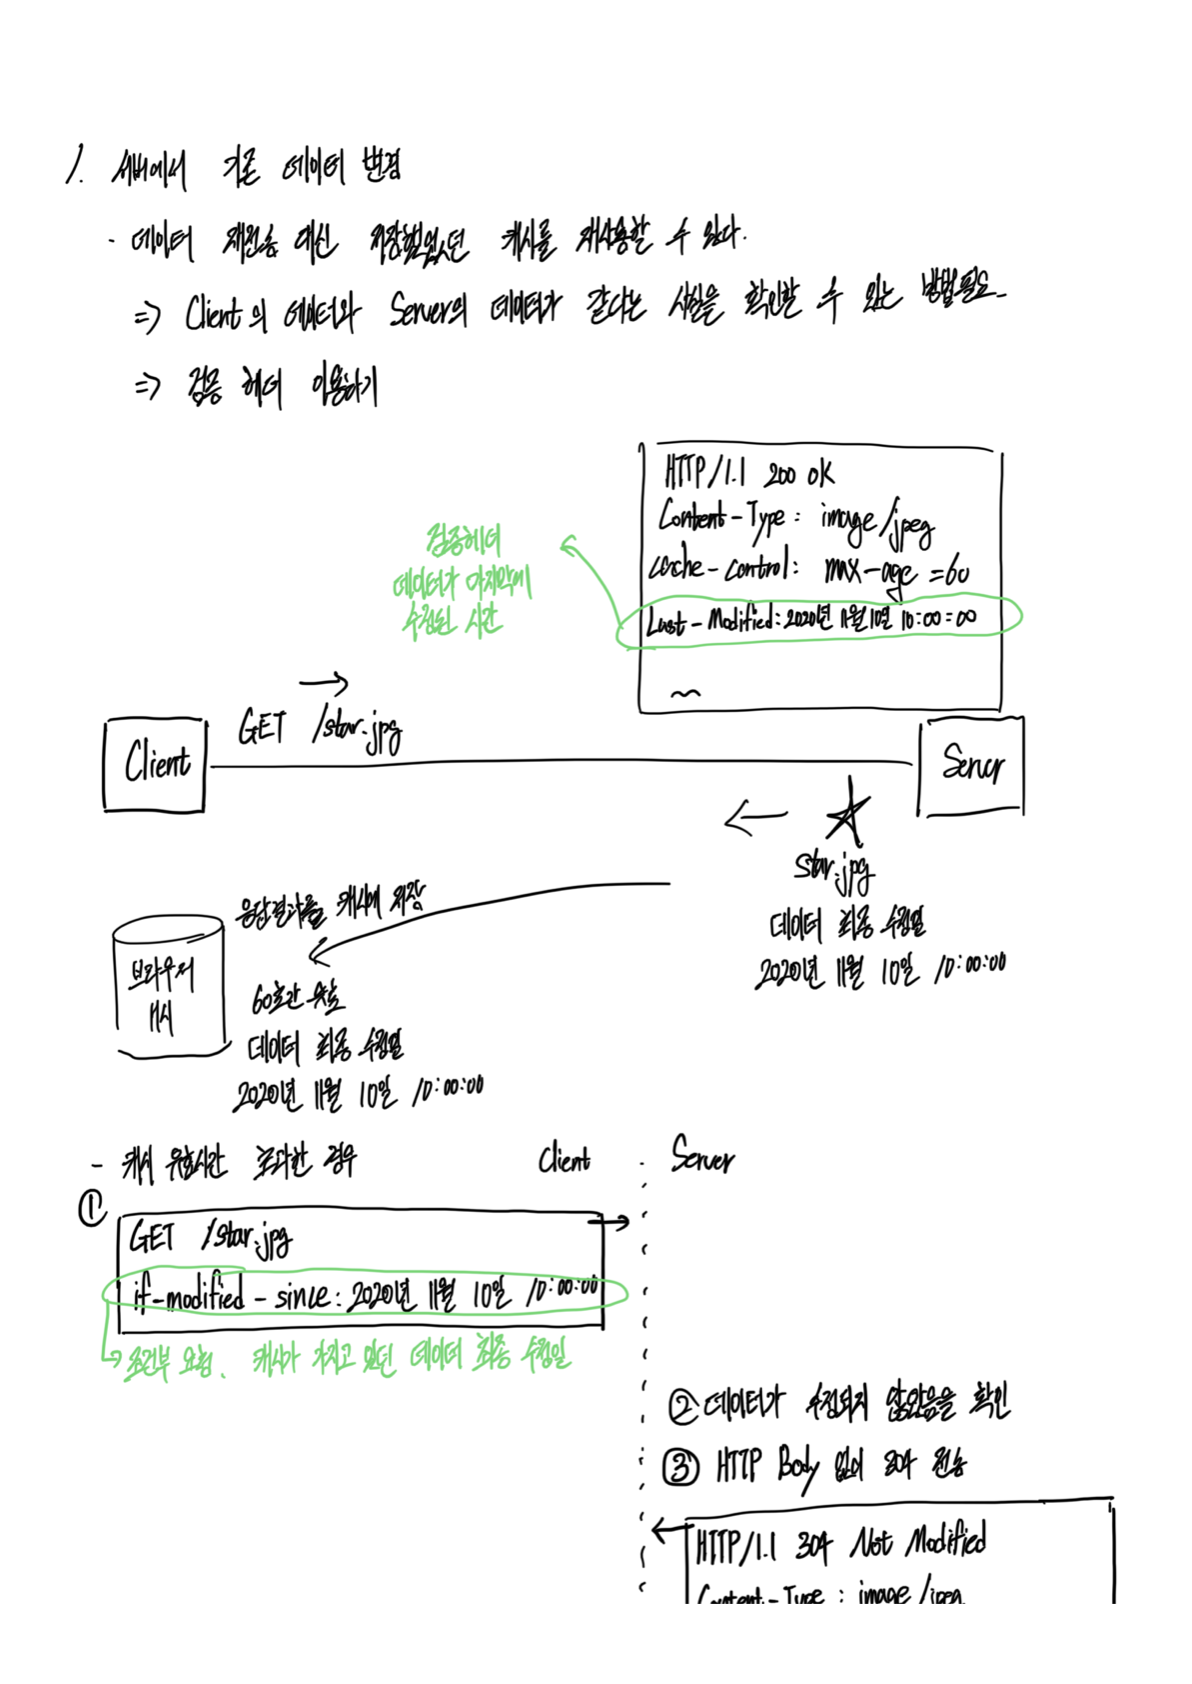 1. 서버에서 기존 데이터 변경
- 데이터 재전송 대신 저장했었던 캐시를 재사용할 수 있다.
=> Client의 데이터와 Server의 데이터가 같다는 사실을 확인할 수 있는 방법필요.
=> 검증 헤더 이용하기
HTTP/1.1 200 OK
Content-Type: image/jpeg
cache-control: max-age=60
Last-Modified: 2020년 11월 10일 10:00:00
검증헤더
데이터가 마지막에
수정된 시간
GET /star.jpg
Client
Server
star.jpg
데이터 최종 수정일
2020년 11월 10일 10:00:00
응답결과를 캐시에 저장
브라우저
캐시
60초간 유효
데이터 최종 수정일
2020년 11월 10일 10:00:00
- 캐시 유효시간 초과한 경우
Client
Server
①
GET /star.jpg
if-modified-since: 2020년 11월 10일 10:00:00
조건부 요청. 캐시가 가지고 있던 데이터 최종 수정일
② 데이터가 수정되지 않았음을 확인
③ HTTP Body 없이 304 전송
HTTP/1.1 304 Not Modified
Content-Type: image/jpeg